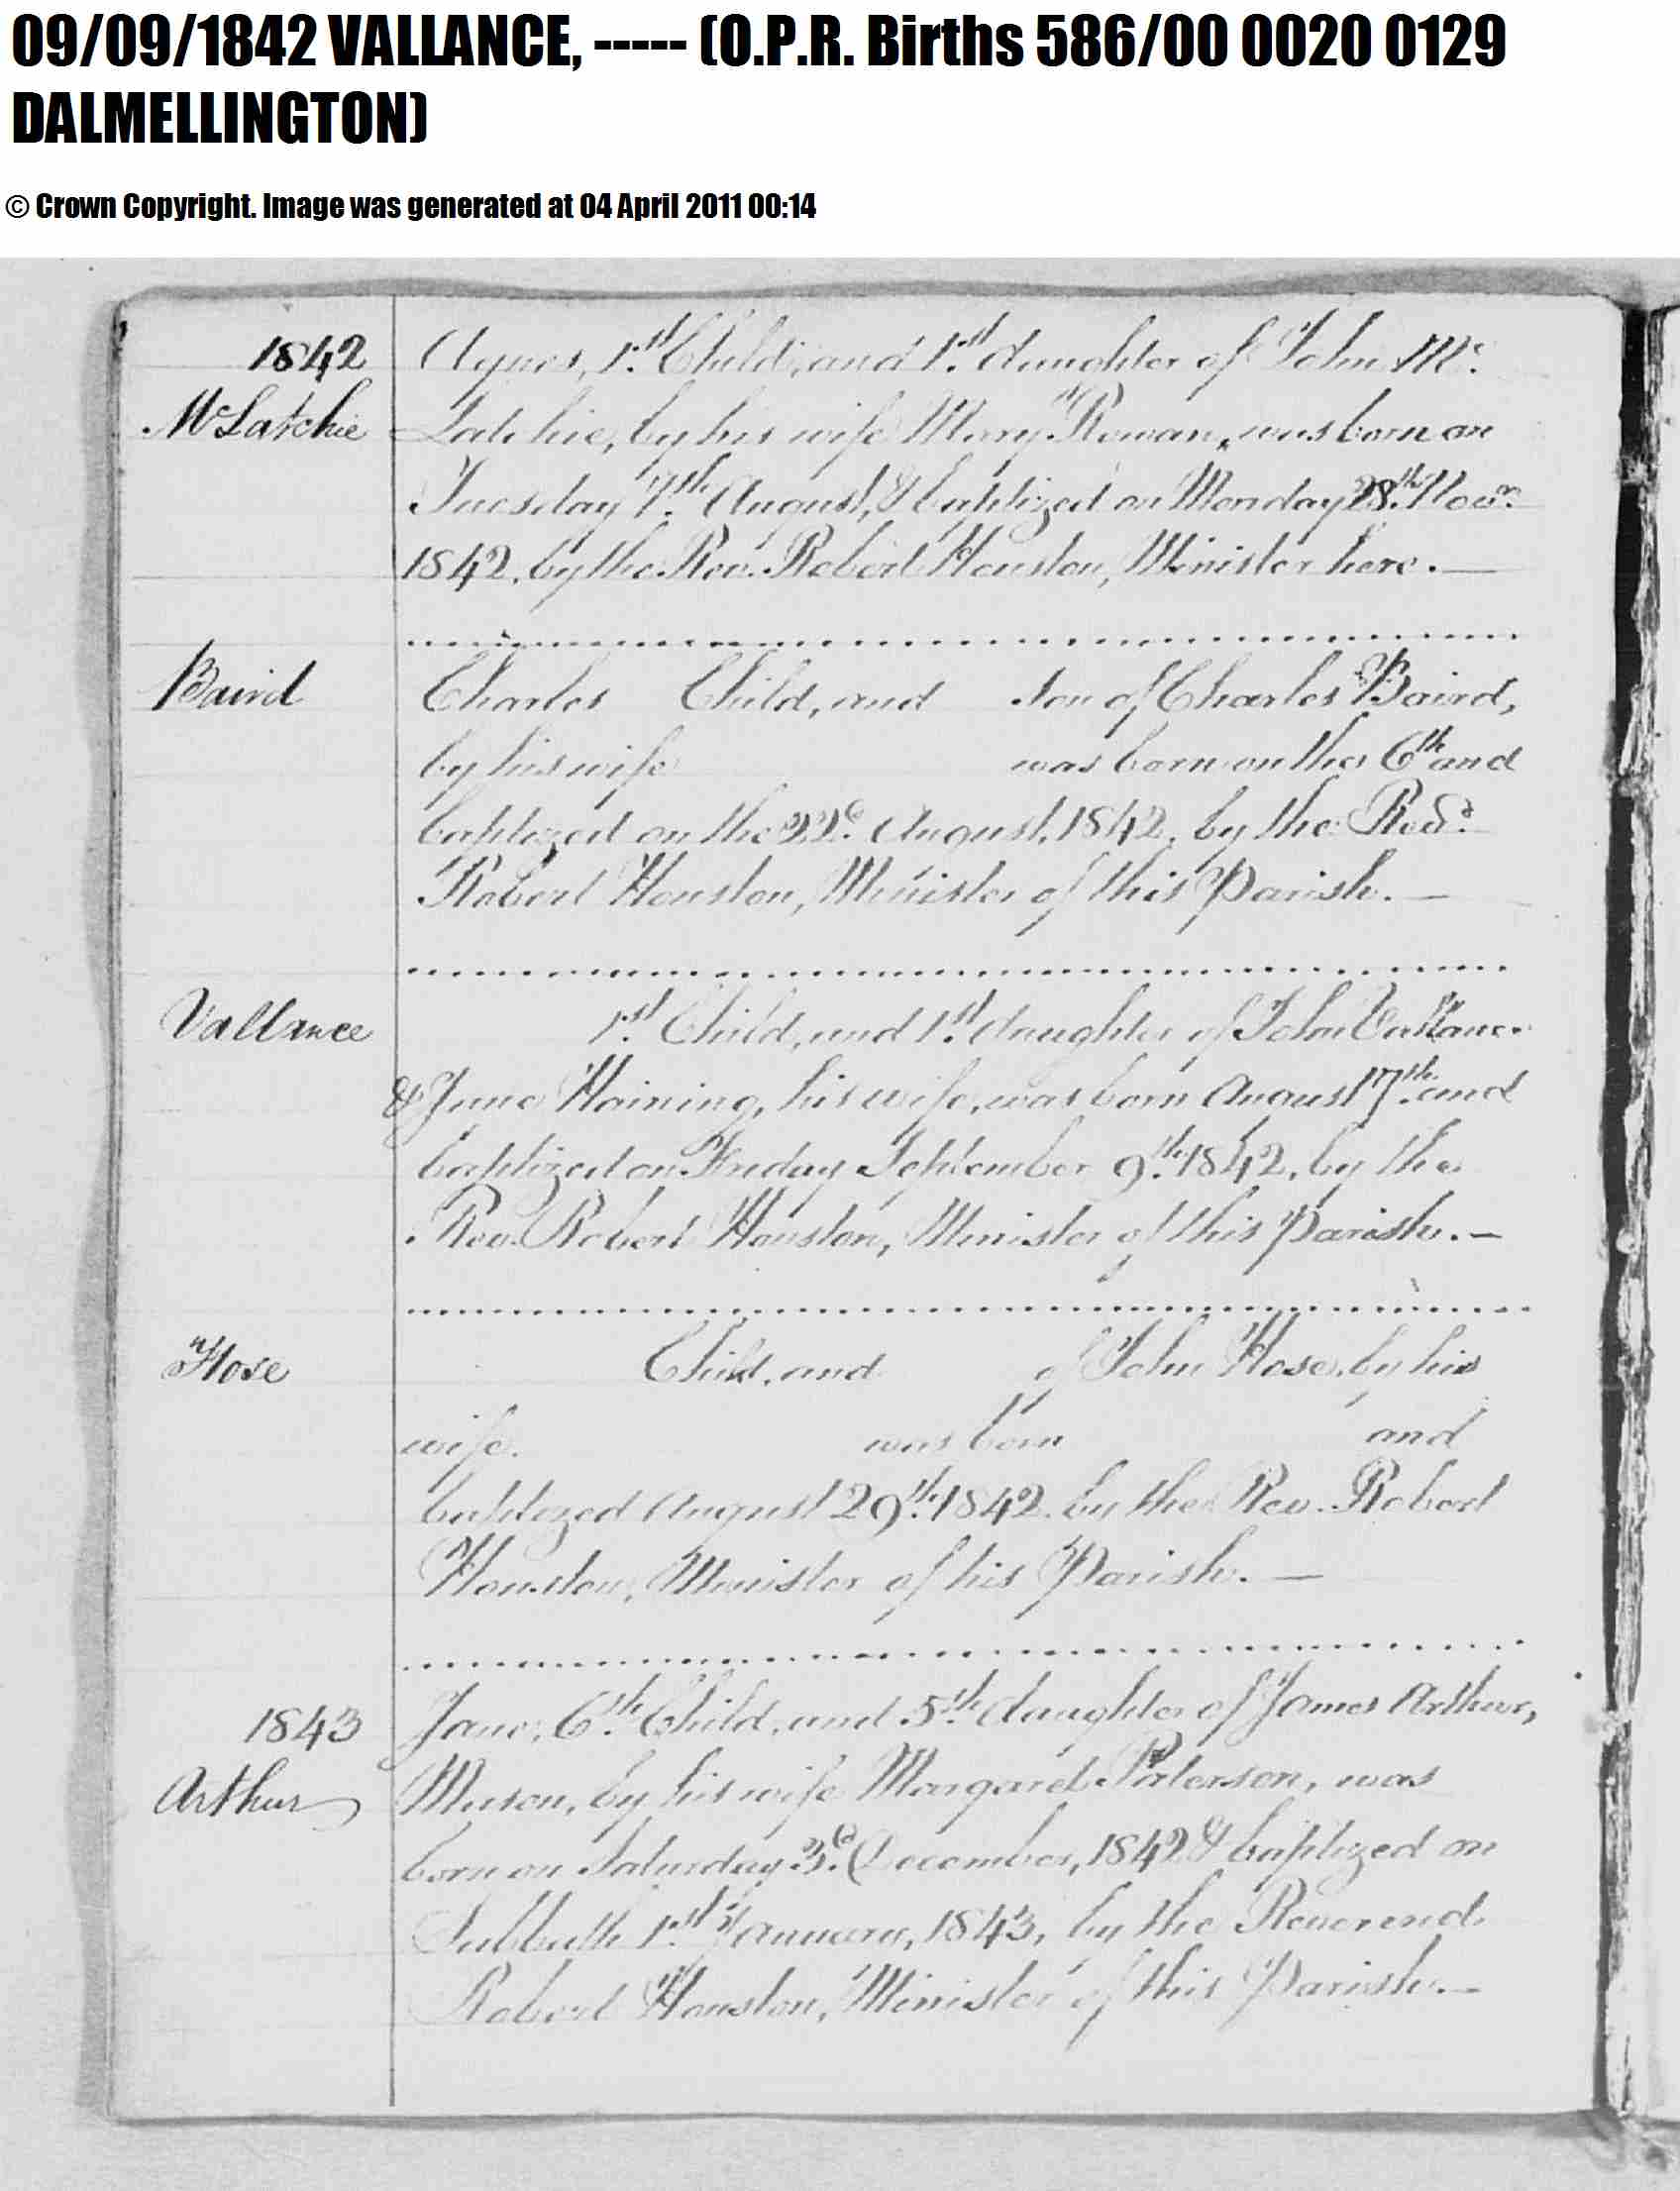 09/09/1842 VALLANCE, ----- (O.P.R. Births 586/00 0020 0129
DALMELLINGTON)
© Crown Copyright. Image was generated at 04 April 2011 00:14
1842 Agnes, 1st. Child, and 1st. daughter of John Mc.
McLatchie Latchie, by his wife Mary Rowan, was born on
Tuesday 7th. August, & baptized on Monday 28th. Novr.
1842, by the Rev. Robert Houston, Minister here. —
Baird Charles Child, and son of Charles Baird,
by his wife was born on the 6th and
baptized on the 22d. August, 1842, by the Revd.
Robert Houston, Minister of this Parish. —
Vallance 1st. Child, and 1st. daughter of John Vallance
& Jane Haining, his wife, was born August 7th. and
baptized on Friday September 9th. 1842, by the
Rev. Robert Houston, Minister of this Parish. —
Hose Child, and of John Hose, by his
wife. was born and
baptized August 29th. 1842. by the Rev. Robert
Houston, Minister of his Parish. —
1843 Jane, 6th. Child, and 5th. daughter of James Arthur,
Arthur Mason, by his wife Margaret Paterson, was
born on Saturday 3d. December, 1842 & baptized on
Sabbath 1st. January, 1843, by the Reverend
Robert Houston, Minister of this Parish. —